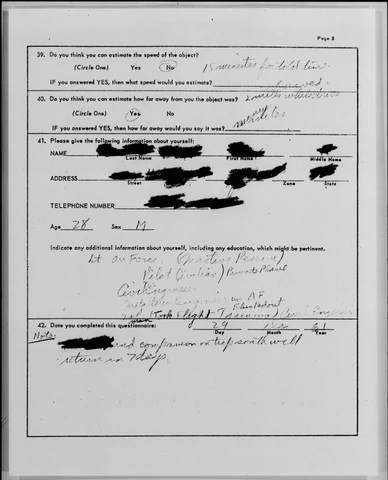 Page 8
39. Do you think you can estimate the speed of the object?
(Circle One) Yes No 15 minutes for total time
IF you answered YES, then what speed would you estimate?
40. Do you think you can estimate how far away from you the object was? 2 miles
(Circle One) Yes No
IF you answered YES, then how far away would you say it was?
41. Please give the following information about yourself:
NAME
Last Name First Name Middle Name
ADDRESS
Street Zone State
TELEPHONE NUMBER
Age 28 Sex M
Indicate any additional information about yourself, including any education, which might be pertinent.
Lt Air Force (Inactive Reserve)
Pilot (Civilian) Private Plane
Civil Engineer
in AF
(Took Flight Training) Civil Engineer
42. Date you completed this questionnaire: 29 61
Day Month Year
Note:
and companion on trip south will
return in 7 days